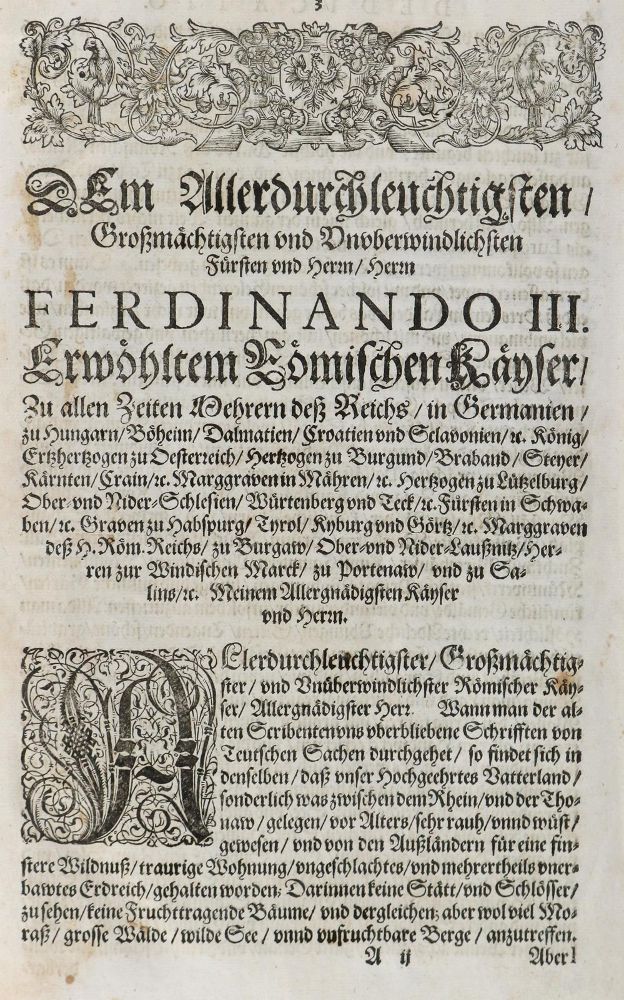 3
DEm Allerdurchleuchtigsten /
Großmächtigsten vnd Vnvberwindlichsten
Fürsten vnd Herrn/ Herrn
FERDINANDO III.
Erwöhltem Römischen Käyser/
Zu allen Zeiten Mehrern deß Reichs / in Germanien /
zu Hungarn/ Böheim/ Dalmatien/ Croatien vnd Sclavonien/ ꝛc. König/
Ertzhertzogen zu Oesterreich/ Hertzogen zu Burgund/ Braband/ Steyer/
Kärnten/ Crain/ ꝛc. Marggraven in Mähren/ ꝛc. Hertzogen zu Lützelburg/
Ober- vnd Nider-Schlesien/ Würtenberg vnd Teck/ ꝛc. Fürsten in Schwa-
ben/ ꝛc. Graven zu Habspurg/ Tyrol/ Kyburg vnd Görtz/ ꝛc. Marggraven
deß H. Röm. Reichs/ zu Burgaw/ Ober- vnd Nider-Laußnitz/ Her-
ren zur Windischen Marck/ zu Portenaw/ vnd zu Sa-
lins/ ꝛc. Meinem Allergnädigsten Käyser
vnd Herrn.
ALlerdurchleuchtigster/ Großmächtig-
ster/ vnd Vnüberwindlichster Römischer Käy-
ser/ Allergnädigster Herr. Wann man der al-
ten Scribenten vns vberbliebene Schrifften von
Teutschen Sachen durchgehet/ so findet sich in
denselben/ daß vnser Hochgeehrtes Vatterland/
sonderlich was zwischen dem Rhein/ vnd der Tho-
naw/ gelegen/ vor Alters/ sehr rauh/ vnnd wüst/
gewesen/ vnd von den Außländern für eine fin-
stere Wildnuß/ traurige Wohnung/ vngeschlachtes/ vnd mehrertheils vner-
bawtes Erdreich/ gehalten worden; Darinnen keine Stätt/ vnd Schlösser/
zu sehen/ keine Fruchttragende Bäume/ vnd dergleichen; aber wol viel Mo-
raß/ grosse Wälde / wilde See / vnnd vnfruchtbare Berge / anzutreffen.
A ij Aber